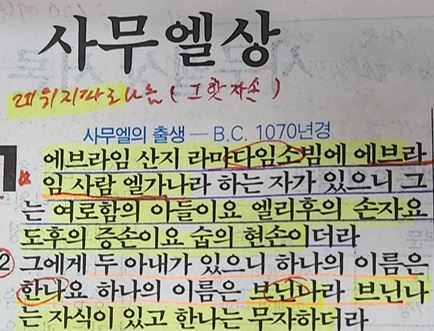 사무엘상
레위지파로나눔 (그핫자손)
사무엘의 출생 — B.C. 1070년경
1 에브라임 산지 라마다임소빔에 에브라
임 사람 엘가나라 하는 자가 있으니 그
는 여로함의 아들이요 엘리후의 손자요
도후의 증손이요 숩의 현손이더라
2 그에게 두 아내가 있으니 하나의 이름은
한나요 하나의 이름은 브닌나라 브닌나
는 자식이 있고 한나는 무자하더라